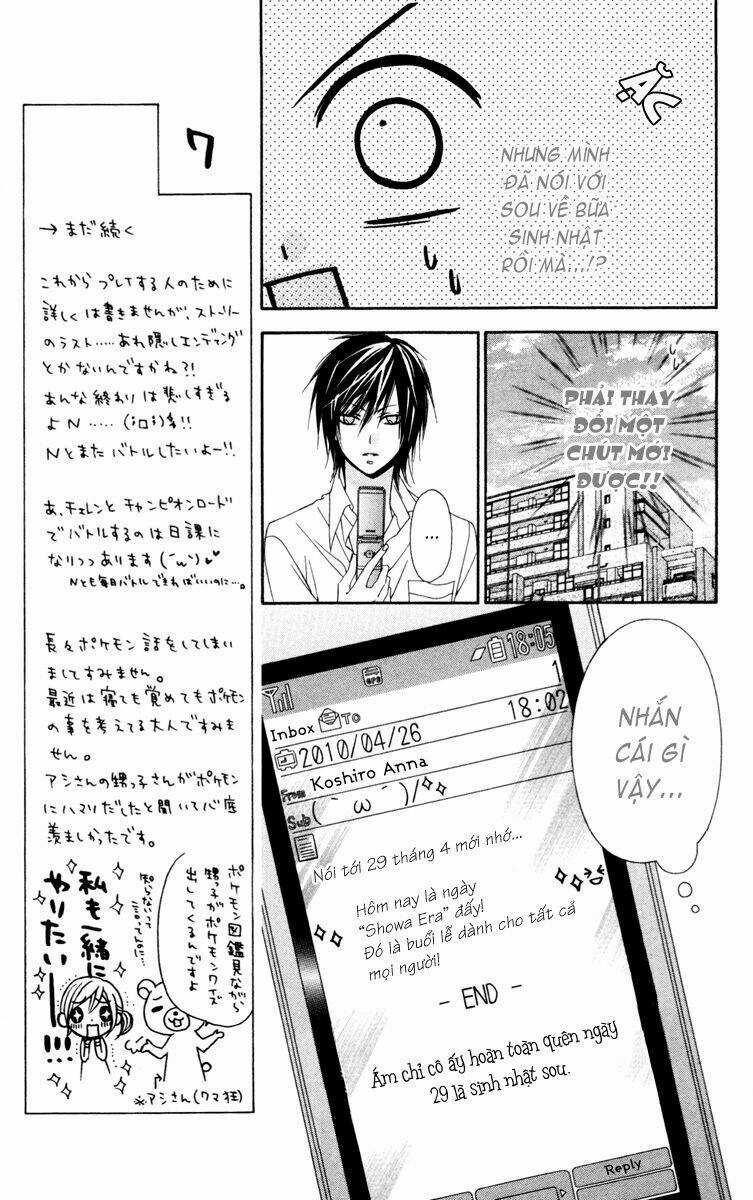 ẶC
NHƯNG MÌNH
ĐÃ NÓI VỚI
SOU VỀ BỮA
SINH NHẬT
RỒI MÀ...!?
PHẢI THAY
ĐỔI MỘT
CHÚT MỚI
ĐƯỢC!!
...
NHẮN
CÁI GÌ
VẬY...
18:05
1
Inbox To
2010/04/26 18:02
From Koshiro Anna
Sub (｀ω´)/
Nói tới 29 tháng 4 mới nhớ...
Hôm nay là ngày
“Showa Era” đấy!
Đó là buổi lễ dành cho tất cả
mọi người!
- END -
Ám chỉ cô ấy hoàn toàn quên ngày
29 là sinh nhật sou.
Reply
7
→まだ続く
これからプレイする人のために
詳しくは書きませんが、ストーリー
のラスト……あれ隠しエンディング
とかないんですかね?!
あんな終わりは悲しすぎる
よN……(；ロ；)!!
Nとまたバトルしたいよー!!
あ、チェレンとチャンピオンロード
でバトルするのは日課に
なりつつあります(´ω`)♥
Nとも毎日バトルできればいいのに…。
長々ポケモン話をしてしまい
ましてすみません。
最近は寝ても覚めてもポケモン
の事を考えてる大人ですみま
せん。
アシさんの甥っ子さんがポケモン
にハマりだしたと聞いて心底
羨ましかったです。
ポケモン図鑑見ながら
甥っ子がポケモンクイズ
出してくるんですよ
知らないって
言ってんのに…
私も一緒に
やりたいー!!!
※アシさん(クマ狂)